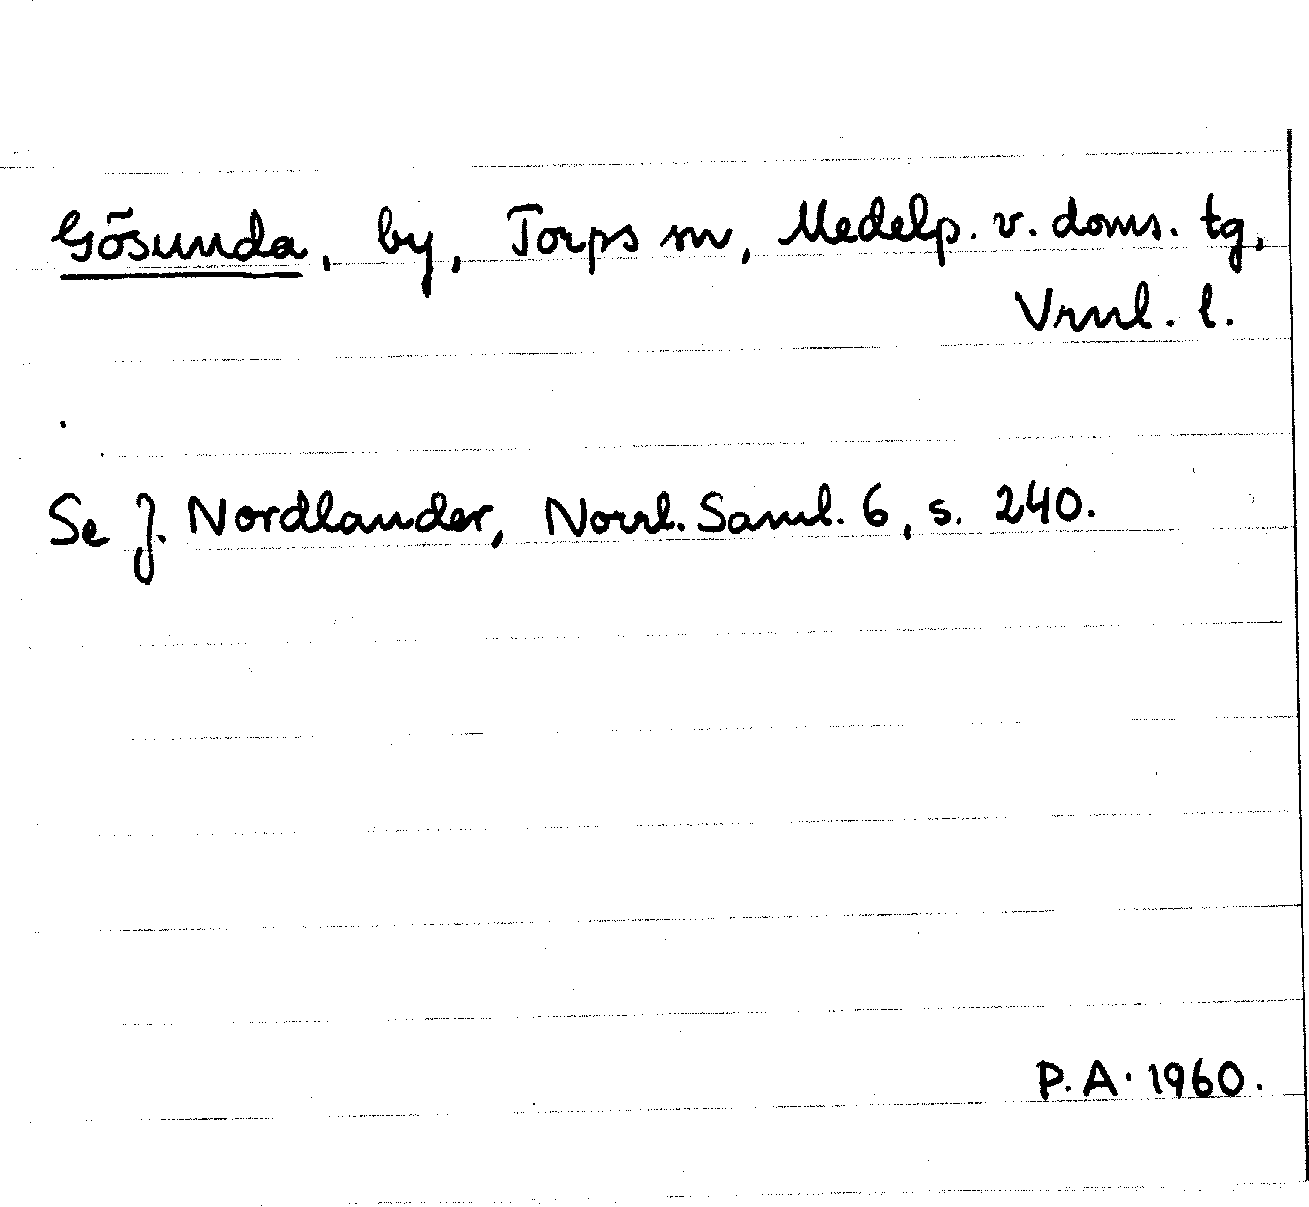 Gösunda, by, Torps sn, Medelp. v. doms. tg,
Vrnl. l.
Se J. Nordlander, Norrl. Saml. 6, s. 240.
P. A. 1960.